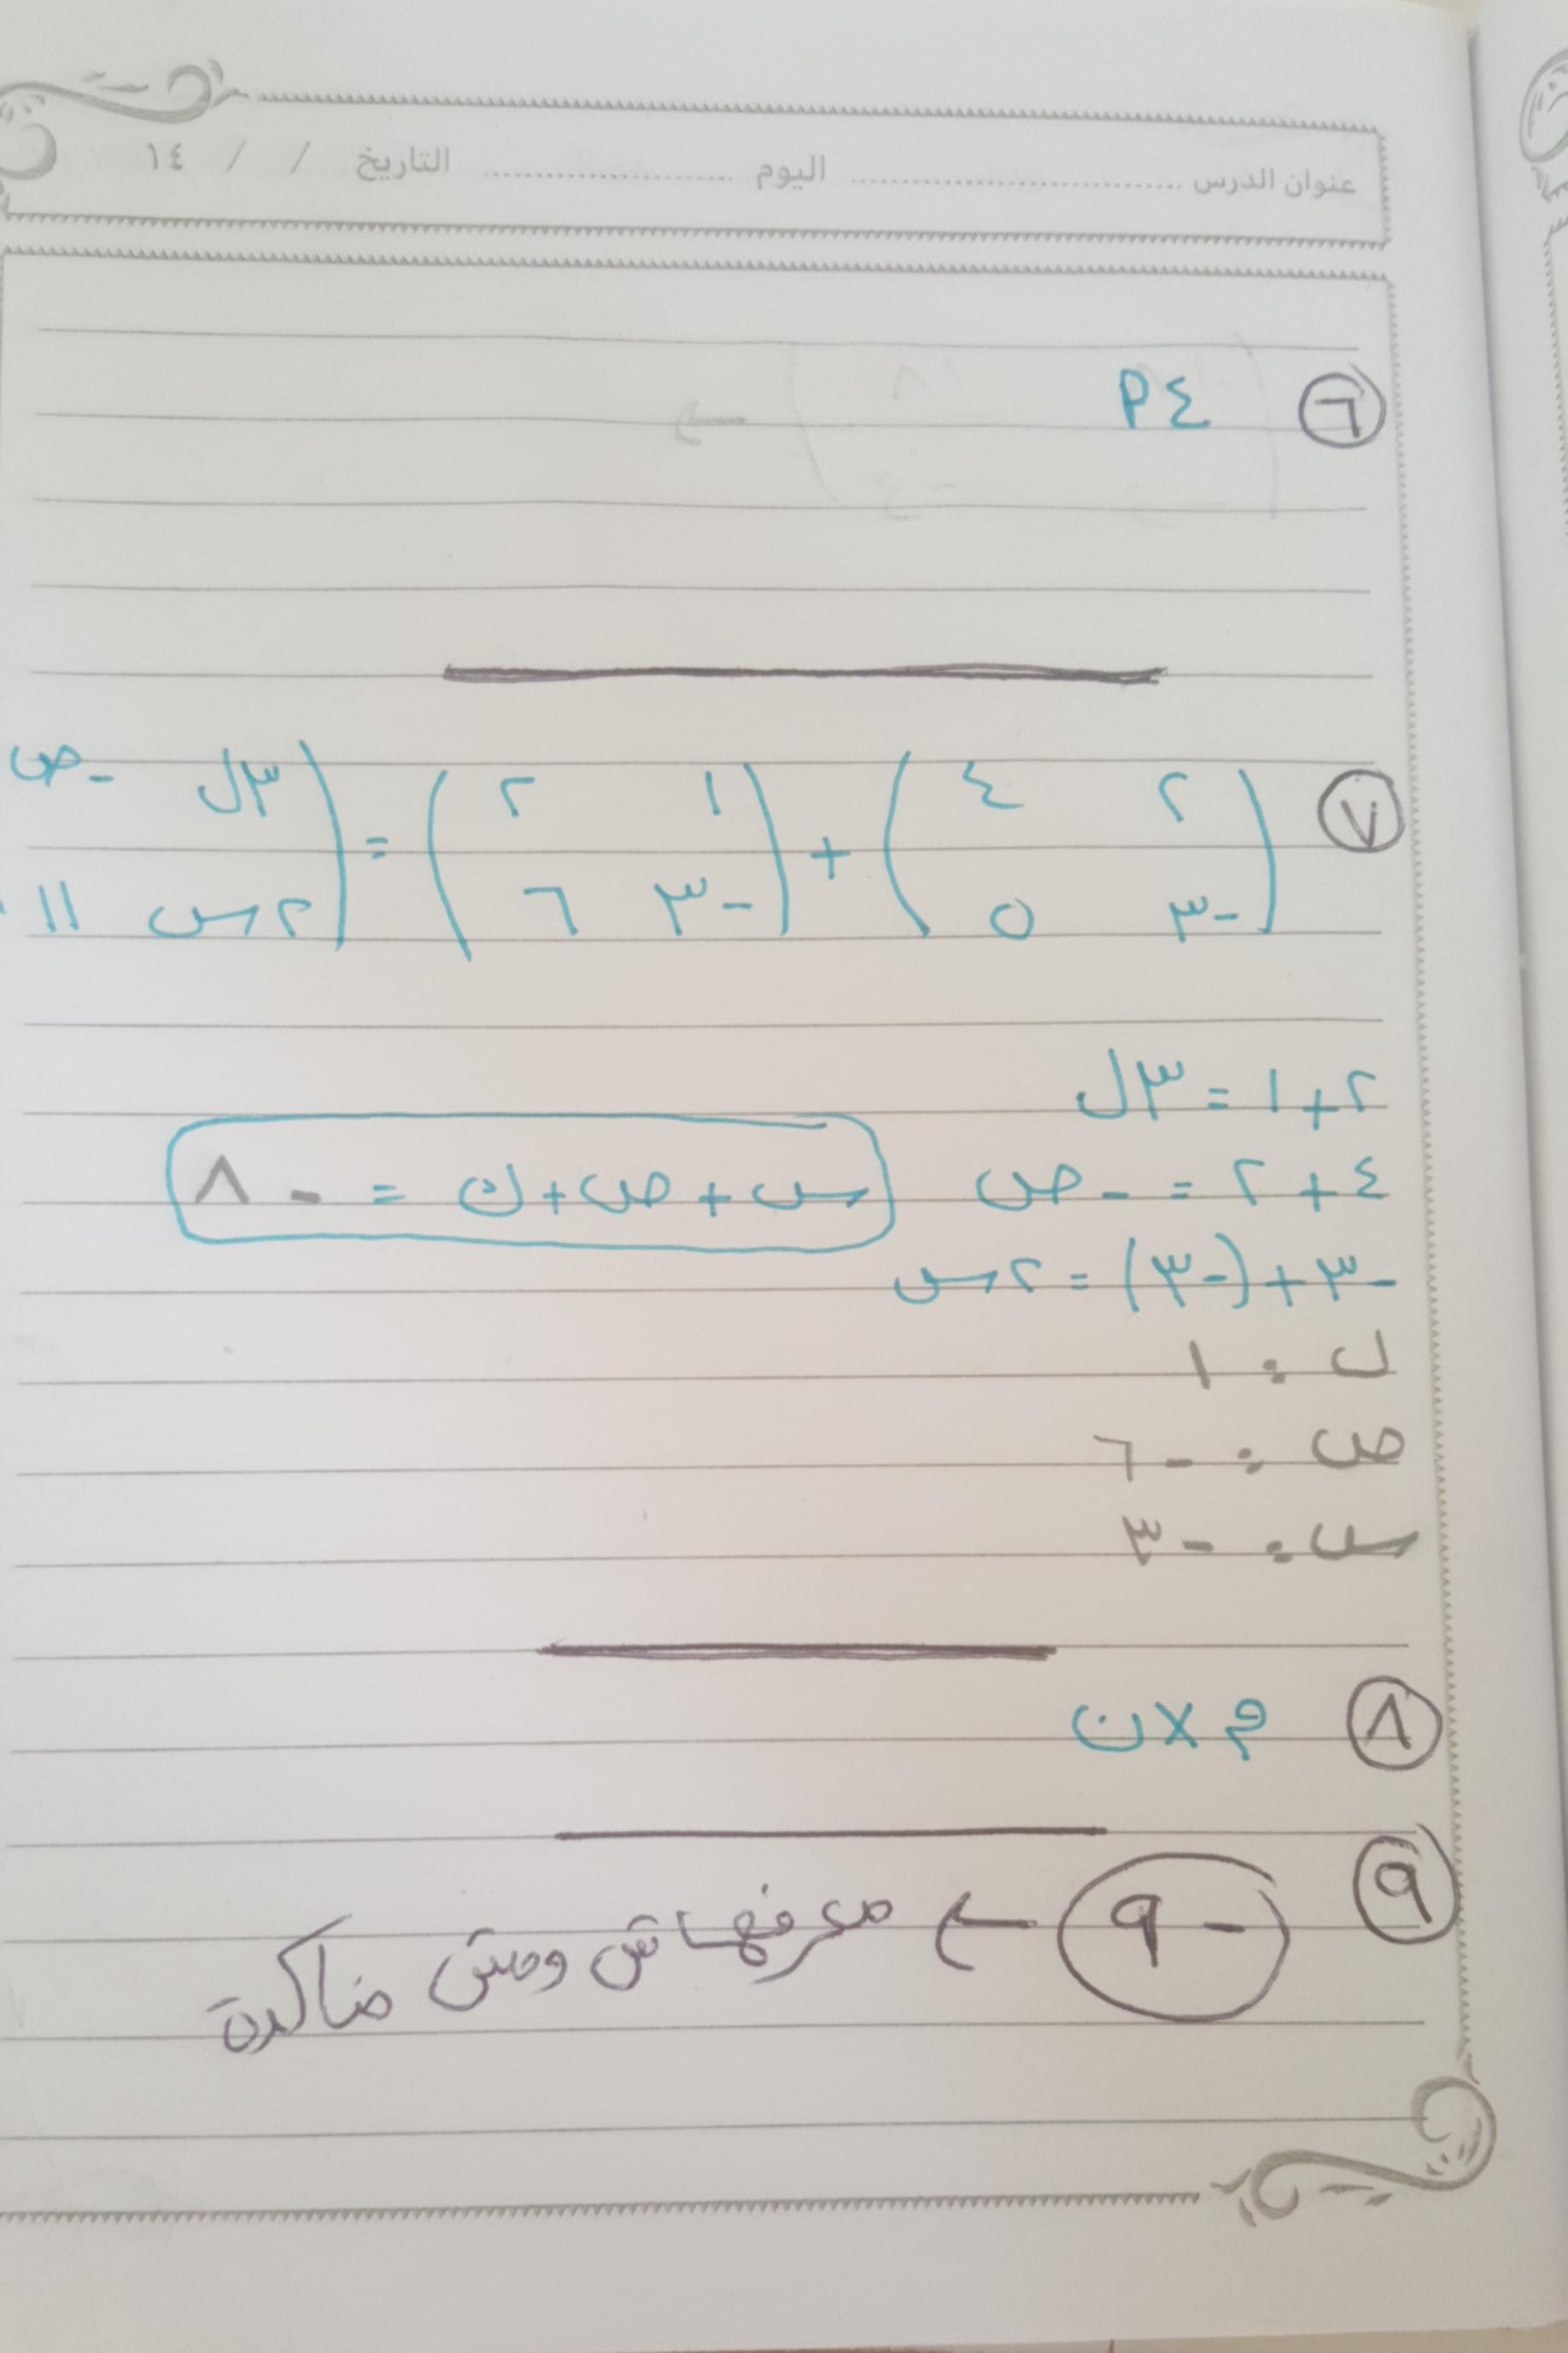 عنوان الدرس .................... اليوم .................... التاريخ / / ١٤
٦ ٤ م
٧ ( ٢ ٤ ) + ( ١ ٢ ) = ( ٣ل -ص
( -٣ ٥ ) ( -٣ ٦ ) ( ٢س ١١
٢ + ١ = ٣ل
٤ + ٢ = -ص س + ص + ل = -٨
-٣ + (-٣) = ٢س
ل = ١
ص = -٦
س = -٣
٨ م × ن
٩ -٩ ← معرفهاش ومش ضاكرة